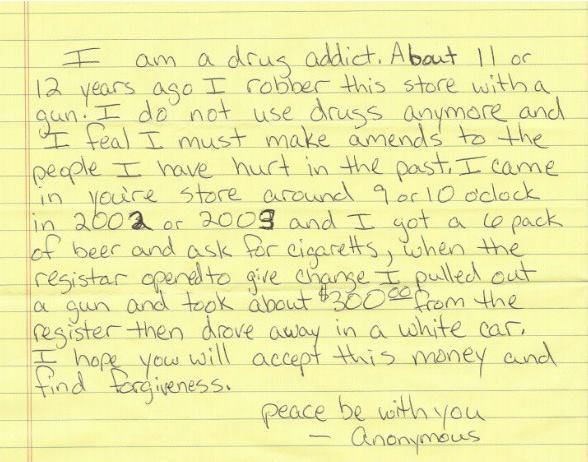 I am a drug addict. About 11 or
12 years ago I robber this store with a
gun. I do not use drugs anymore and
I feal I must make amends to the
people I have hurt in the past. I came
in you're store around 9 or 10 oclock
in 2002 or 2003 and I got a 6 pack
of beer and ask for cigaretts, when the
registar opened to give change I pulled out
a gun and took about $300.00 from the
register then drove away in a white car.
I hope you will accept this money and
find forgiveness.
peace be with you
— Anonymous